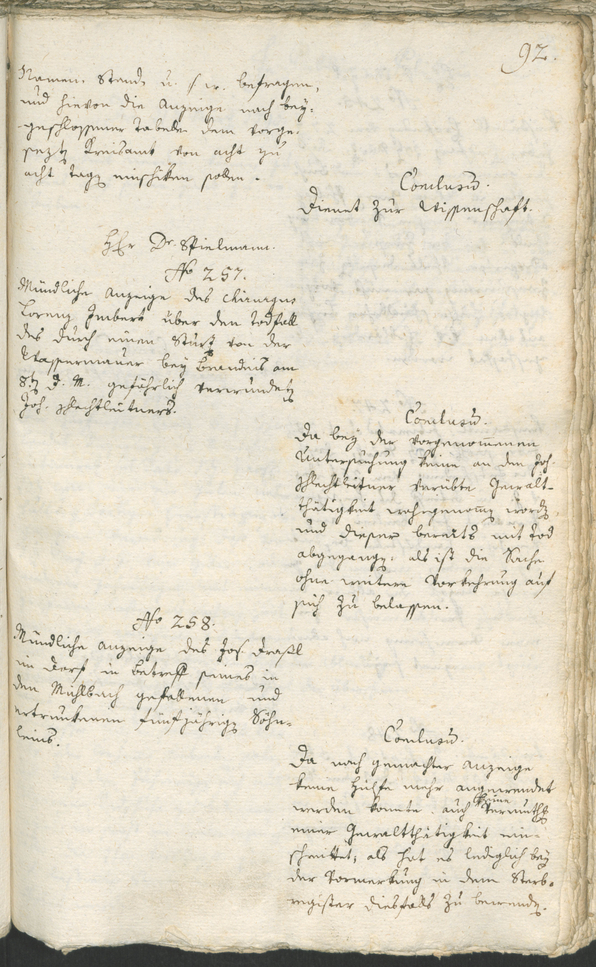 92.
Namen, Stand, u. s. w. befragen,
und hievon die Anzeige nach bey-
geschlossener Tabelle dem vorge-
sezt Kreisamt von acht zu
acht Tag einschiken sollen.
Conclusu.
Dienet zur Wissenschaft.
Hhr Dr. Spielmann.
No 257.
Mündliche Anzeige des Chirurgus
Lorenz über den Todfall
des durch einen Sturz von der
Wassermauer bey am
8t d. M. gefährlich verwundet
Joh. Schlechtleitners.
Conclusu.
Da bey der vorgenommenen
Untersuchung keine an dem Joh.
Schlechtleitner verübte Gewalt-
thätigkeit wahrgenomm word,
und dieser bereits mit Tod
abgegang, als ist die Sache
ohne weitere Vorkehrung auf
sich zu belassen.
No 258.
Mündliche Anzeige des Jos.
im Dorf in betreff seines in
den Mühlbach gefallenen und
ertrunkenen fünfjährig Söhn-
leins.
Conclusu.
Da nach gemachter Anzeige
keine Hülfe mehr angewendet
werden konnte, auch keine Vermuth
einer Gewaltthätigkeit ein-
schreittet, als hat es lediglich bey
der Vormerkung in dem Sterb-
register diesfalls zu bewend.